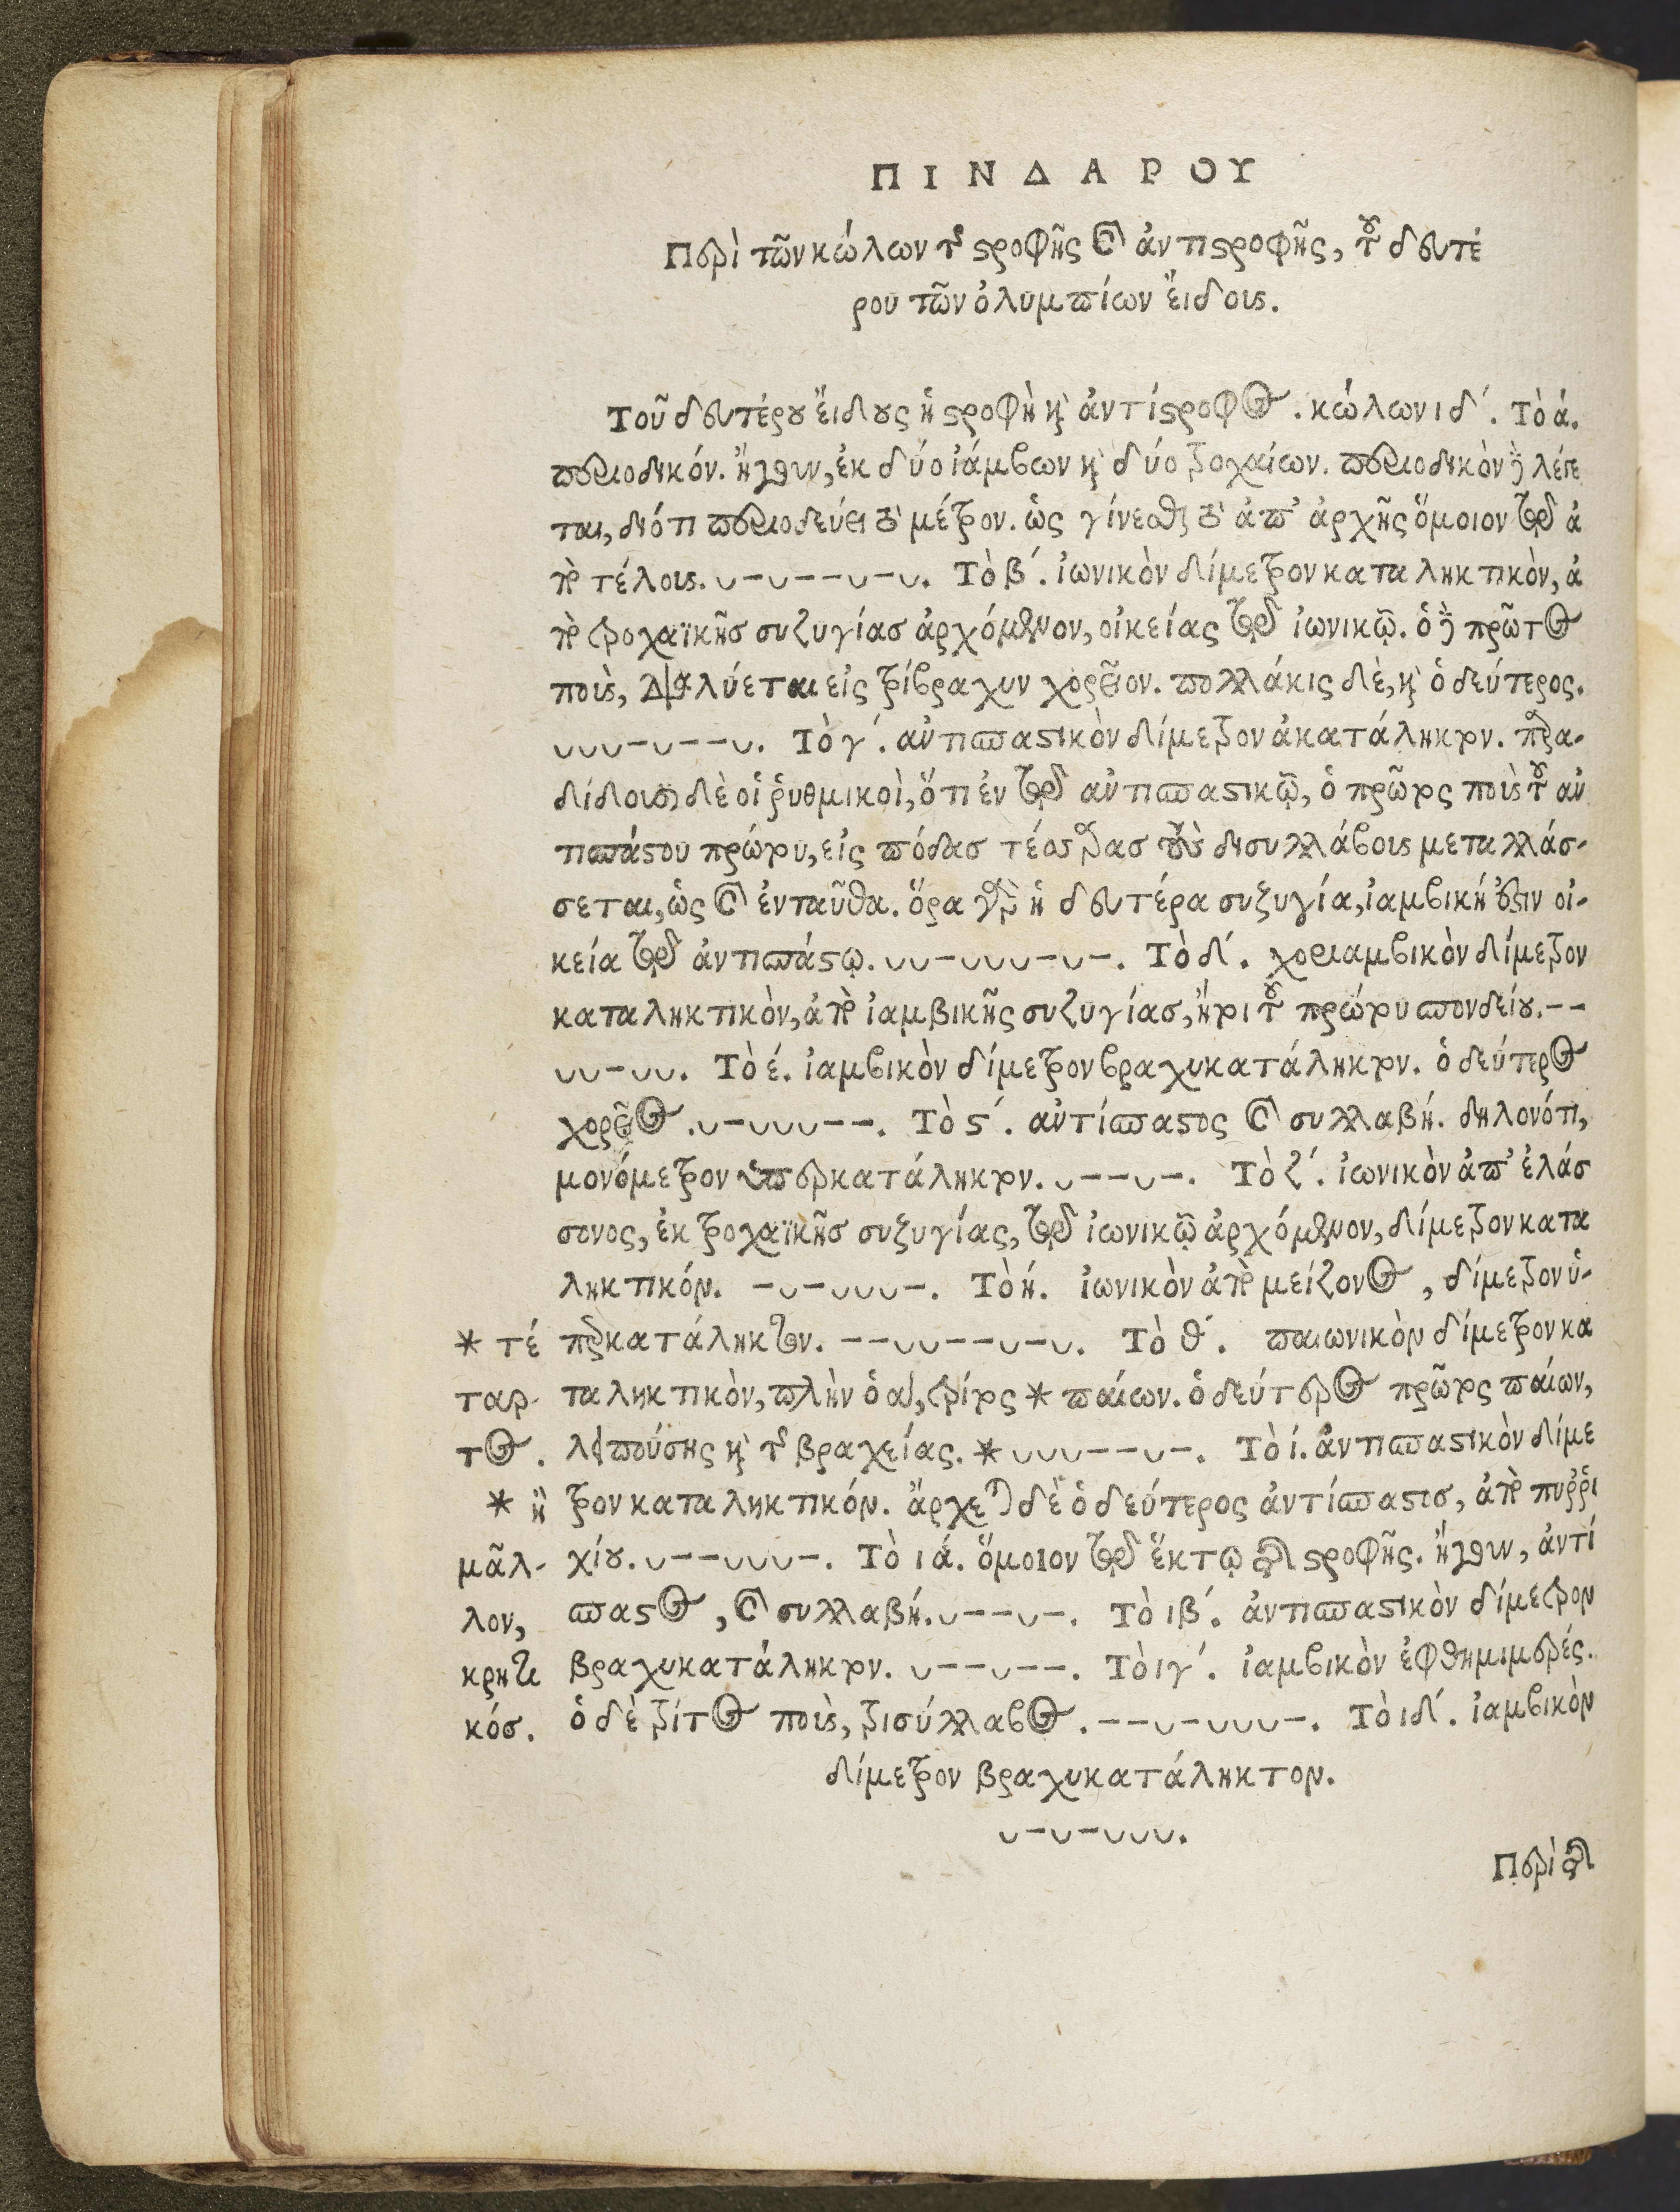 ΠΙΝΔΑΡΟΥ
Περὶ τῶν κώλων τῆς στροφῆς καὶ ἀντιστροφῆς, τοῦ δευτέ
ρου τῶν ὀλυμπίων εἴδους.
Τοῦ δευτέρου εἴδους ἡ στροφὴ καὶ ἀντίστροφος. κώλων ιδ΄. Τὸ ά.
περιοδικόν. ἤγουν, ἐκ δύο ἰάμβων καὶ δύο τροχαίων. περιοδικὸν δὲ λέγε
ται, διότι περιοδεύει τὸ μέτρον. ὡς γίνεσθαι τὸ ἀπ' ἀρχῆς ὅμοιον τῷ ἀ
πὸ τέλους. ᴗ-ᴗ--ᴗ-ᴗ. Τὸ β΄. ἰωνικὸν δίμετρον καταληκτικὸν, ἀ
πὸ τροχαϊκῆς συζυγίας ἀρχόμενον, οἰκείας τῷ ἰωνικῷ. ὁ δὲ πρῶτος
ποὺς, διαλύεται εἰς τρίβραχυν χορεῖον. πολλάκις δὲ, καὶ ὁ δεύτερος.
ᴗᴗᴗ-ᴗ--ᴗ. Τὸ γ΄. ἀντισπαστικὸν δίμετρον ἀκατάληκτον. παρα-
δίδουσι δὲ οἱ ῥυθμικοὶ, ὅτι ἐν τῷ ἀντισπαστικῷ, ὁ πρῶτος ποὺς τοῦ ἀν
τισπάστου πρώτου, εἰς πόδας τέσσαρας τοὺς δισυλλάβους μεταλλάσ-
σεται, ὡς καὶ ἐνταῦθα. ὅρα γὰρ ἡ δευτέρα συζυγία, ἰαμβική ἐστιν οἰ-
κεία τῷ ἀντισπάστῳ. ᴗᴗ-ᴗᴗᴗ-ᴗ-. Τὸ δ΄. χοριαμβικὸν δίμετρον
καταληκτικὸν, ἀπὸ ἰαμβικῆς συζυγίας, ἤτοι τοῦ πρώτου σπονδείου. --
ᴗᴗ-ᴗᴗ. Τὸ έ. ἰαμβικὸν δίμετρον βραχυκατάληκτον. ὁ δεύτερος
χορεῖος. ᴗ-ᴗᴗᴗ--. Τὸ ς΄. ἀντίσπαστος καὶ συλλαβή. δηλονότι,
μονόμετρον ὑπερκατάληκτον. ᴗ--ᴗ-. Τὸ ζ΄. ἰωνικὸν ἀπ' ἐλάσ
σονος, ἐκ τροχαϊκῆς συζυγίας, τῷ ἰωνικῷ ἀρχόμενον, δίμετρον κατα
ληκτικόν. -ᴗ-ᴗᴗᴗ-. Τὸ ή. ἰωνικὸν ἀπὸ μείζονος, δίμετρον ὑ-
περκατάληκτον. --ᴗᴗ--ᴗ-ᴗ. Τὸ θ΄. παιωνικὸν δίμετρον κα
ταληκτικὸν, πλὴν ὁ α΄, τρίτος * παίων. ὁ δεύτερος πρῶτος παίων,
λειπούσης καὶ τῆς βραχείας. * ᴗᴗᴗ--ᴗ-. Τὸ ί. ἀντισπαστικὸν δίμε
τρον καταληκτικόν. ἄρχεται δὲ ὁ δεύτερος ἀντίσπαστος, ἀπὸ πυῤῥι
χίου. ᴗ--ᴗᴗᴗ-. Τὸ ιά. ὅμοιον τῷ ἕκτῳ τῆς στροφῆς. ἤγουν, ἀντί
σπαστος, καὶ συλλαβή. ᴗ--ᴗ-. Τὸ ιβ΄. ἀντισπαστικὸν δίμετρον
βραχυκατάληκτον. ᴗ--ᴗ--. Τὸ ιγ΄. ἰαμβικὸν ἑφθημιμερές.
ὁ δὲ τρίτος ποὺς, τρισύλλαβος. --ᴗ-ᴗᴗᴗ-. Τὸ ιδ΄. ἰαμβικὸν
δίμετρον βραχυκατάληκτον.
ᴗ-ᴗ-ᴗᴗᴗ.
* τέ
ταρ-
τος.
* ἢ
μᾶλ-
λον,
κρητι
κός.
Περὶ τῶν